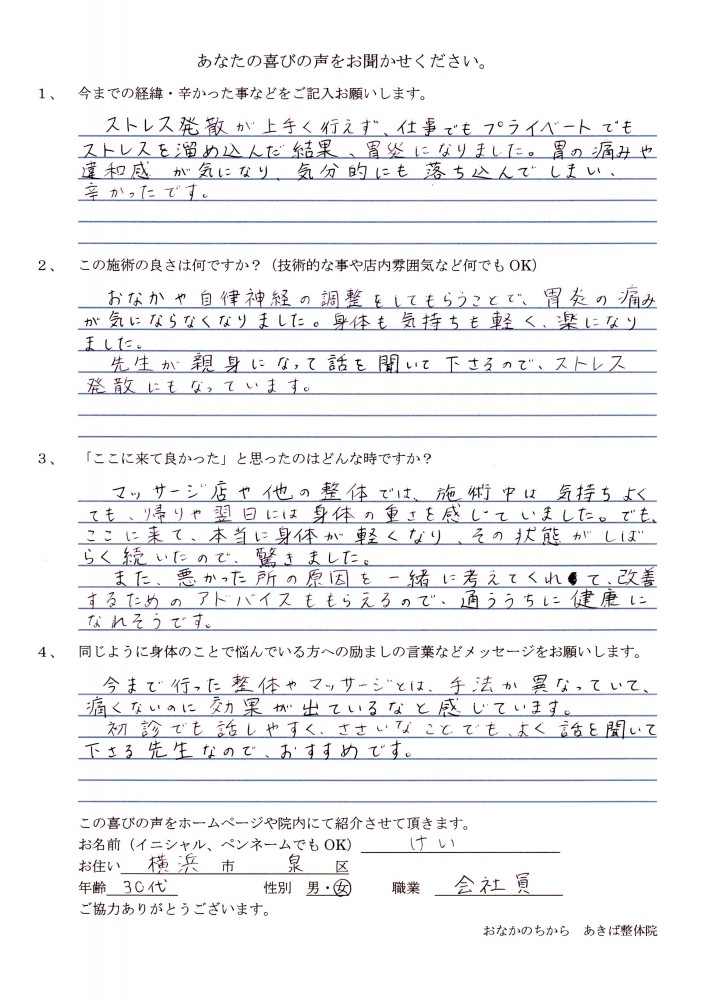 あなたの喜びの声をお聞かせください。
1、 今までの経緯・辛かった事などをご記入お願いします。
ストレス発散が上手く行えず、仕事でもプライベートでも
ストレスを溜め込んだ結果、胃炎になりました。胃の痛みや
違和感が気になり、気分的にも落ち込んでしまい、
辛かったです。
2、 この施術の良さは何ですか？（技術的な事や店内雰囲気など何でもOK）
おなかや自律神経の調整をしてもらうことで、胃炎の痛み
が気にならなくなりました。身体も気持ちも軽く、楽になり
ました。
先生が親身になって話を聞いて下さるので、ストレス
発散にもなっています。
3、 「ここに来て良かった」と思ったのはどんな時ですか？
マッサージ店や他の整体では、施術中は気持ちよく
ても、帰りや翌日には身体の重さを感じていました。でも、
ここに来て、本当に身体が軽くなり、その状態がしば
らく続いたので、驚きました。
また、悪かった所の原因を一緒に考えてくれて、改善
するためのアドバイスももらえるので、通ううちに健康に
なれそうです。
4、 同じように身体のことで悩んでいる方への励ましの言葉などメッセージをお願いします。
今まで行った整体やマッサージとは、手法が異なっていて、
痛くないのに効果が出ているなと感じています。
初診でも話しやすく、ささいなことでも、よく話を聞いて
下さる先生なので、おすすめです。
この喜びの声をホームページや院内にて紹介させて頂きます。
お名前（イニシャル、ペンネームでもOK） けい
お住い 横浜 市 泉 区
年齢 30代 性別 男・女 職業 会社員
ご協力ありがとうございます。
おなかのちから あきば整体院